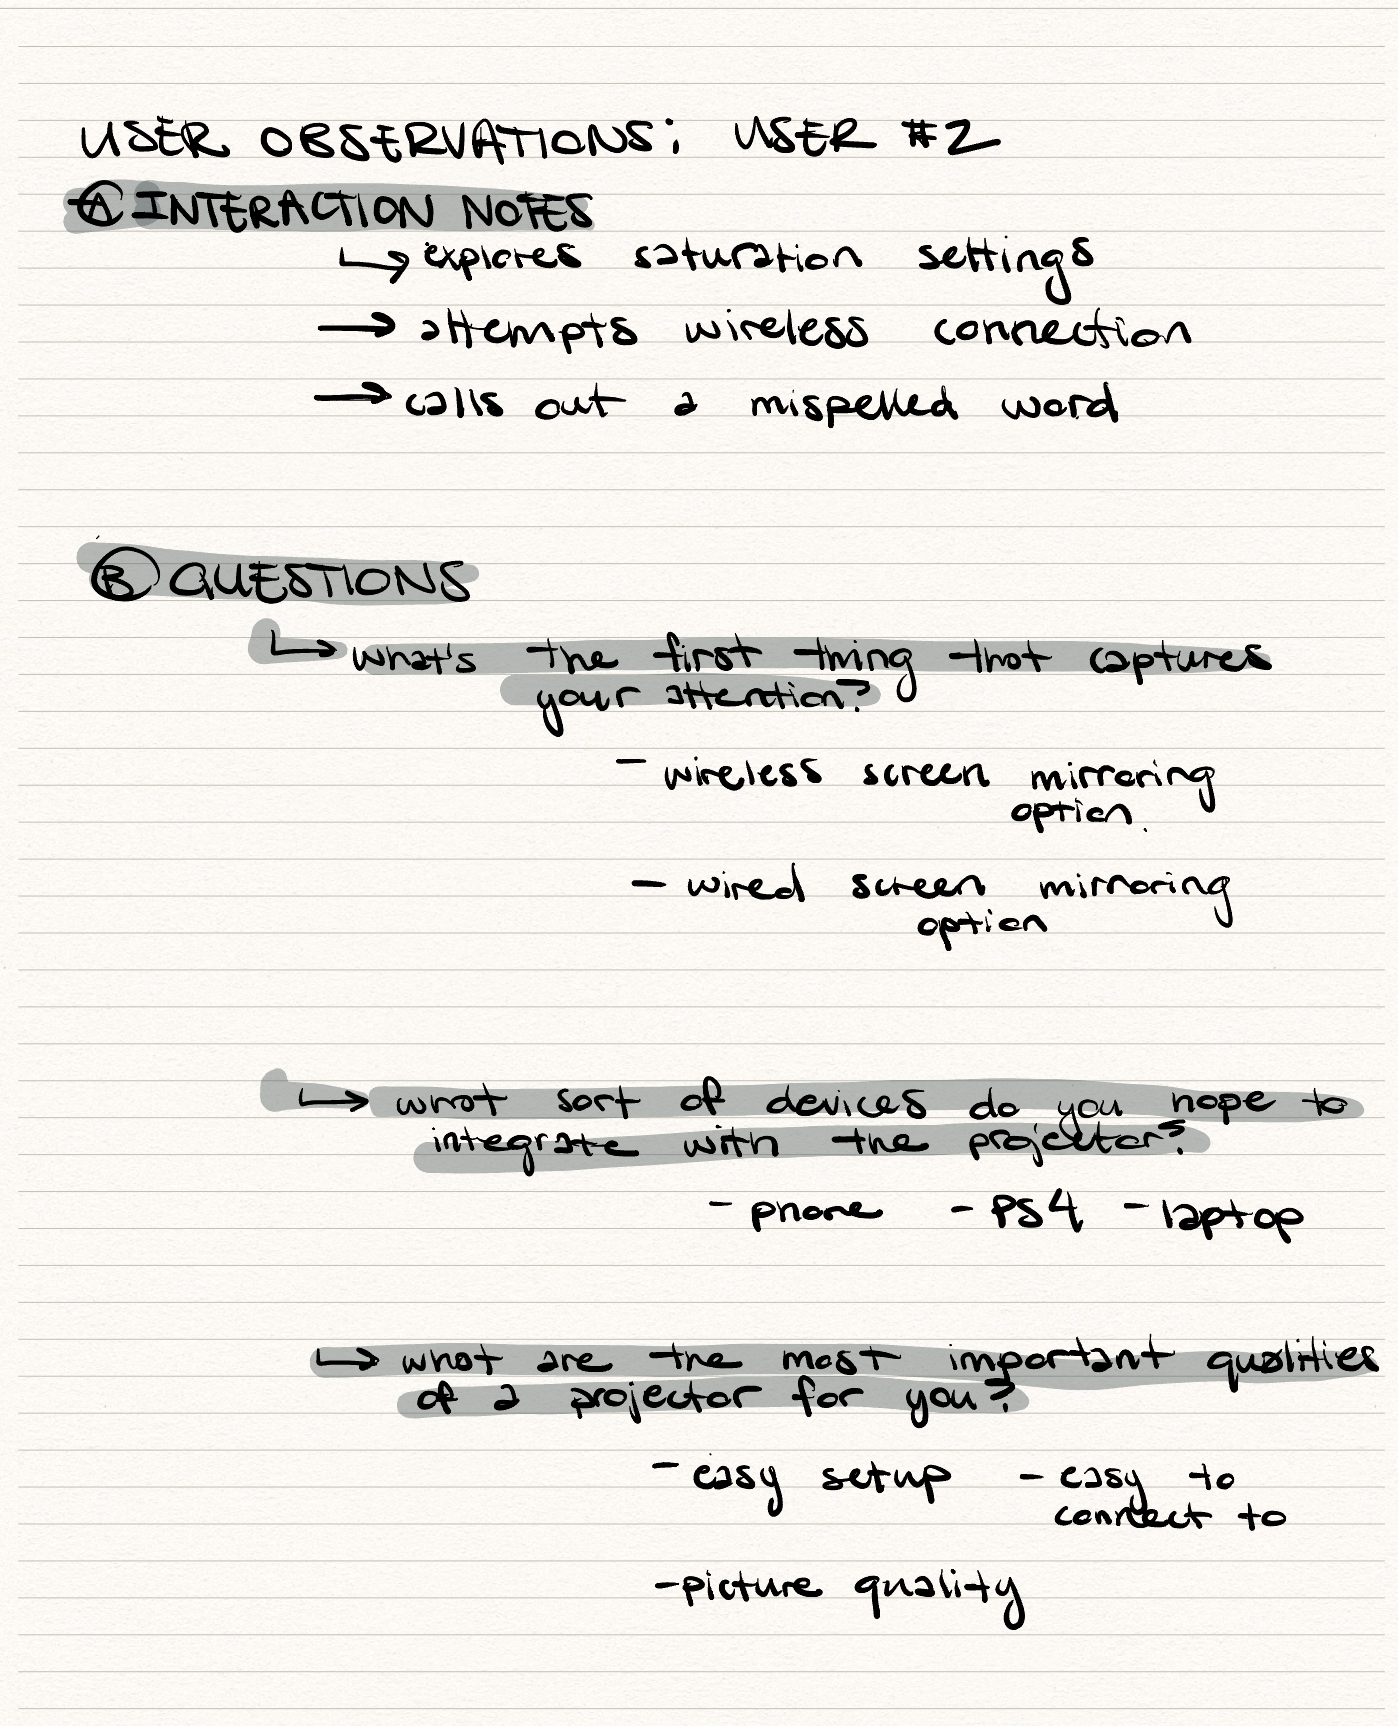 USER OBSERVATIONS: USER #2
Ⓐ INTERACTION NOTES
↳ explores saturation settings
→ attempts wireless connection
→ calls out a mispelled word
Ⓑ QUESTIONS
↳ what's the first thing that captures
your attention?
- wireless screen mirroring
option.
- wired screen mirroring
option
↳ what sort of devices do you hope to
integrate with the projector?
- phone - PS4 - laptop
↳ what are the most important qualities
of a projector for you?
- easy setup - easy to
connect to
- picture quality